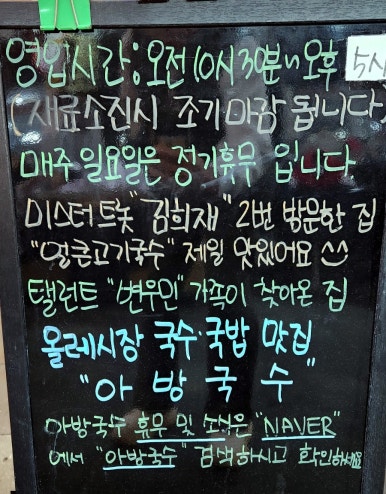 영업시간: 오전 10시 30분~오후 5시
(재료소진시 조기마감 됩니다)
매주 일요일은 정기휴무 입니다
미스터트롯 "김희재" 2번 방문한 집
"얼큰고기국수" 제일 맛있어요
탤런트 "변우민" 가족이 찾아온 집
올레시장 국수·국밥 맛집
"아방국수"
아방국수 휴무 및 소식은 "NAVER"
에서 "아방국수" 검색하시고 확인하세요